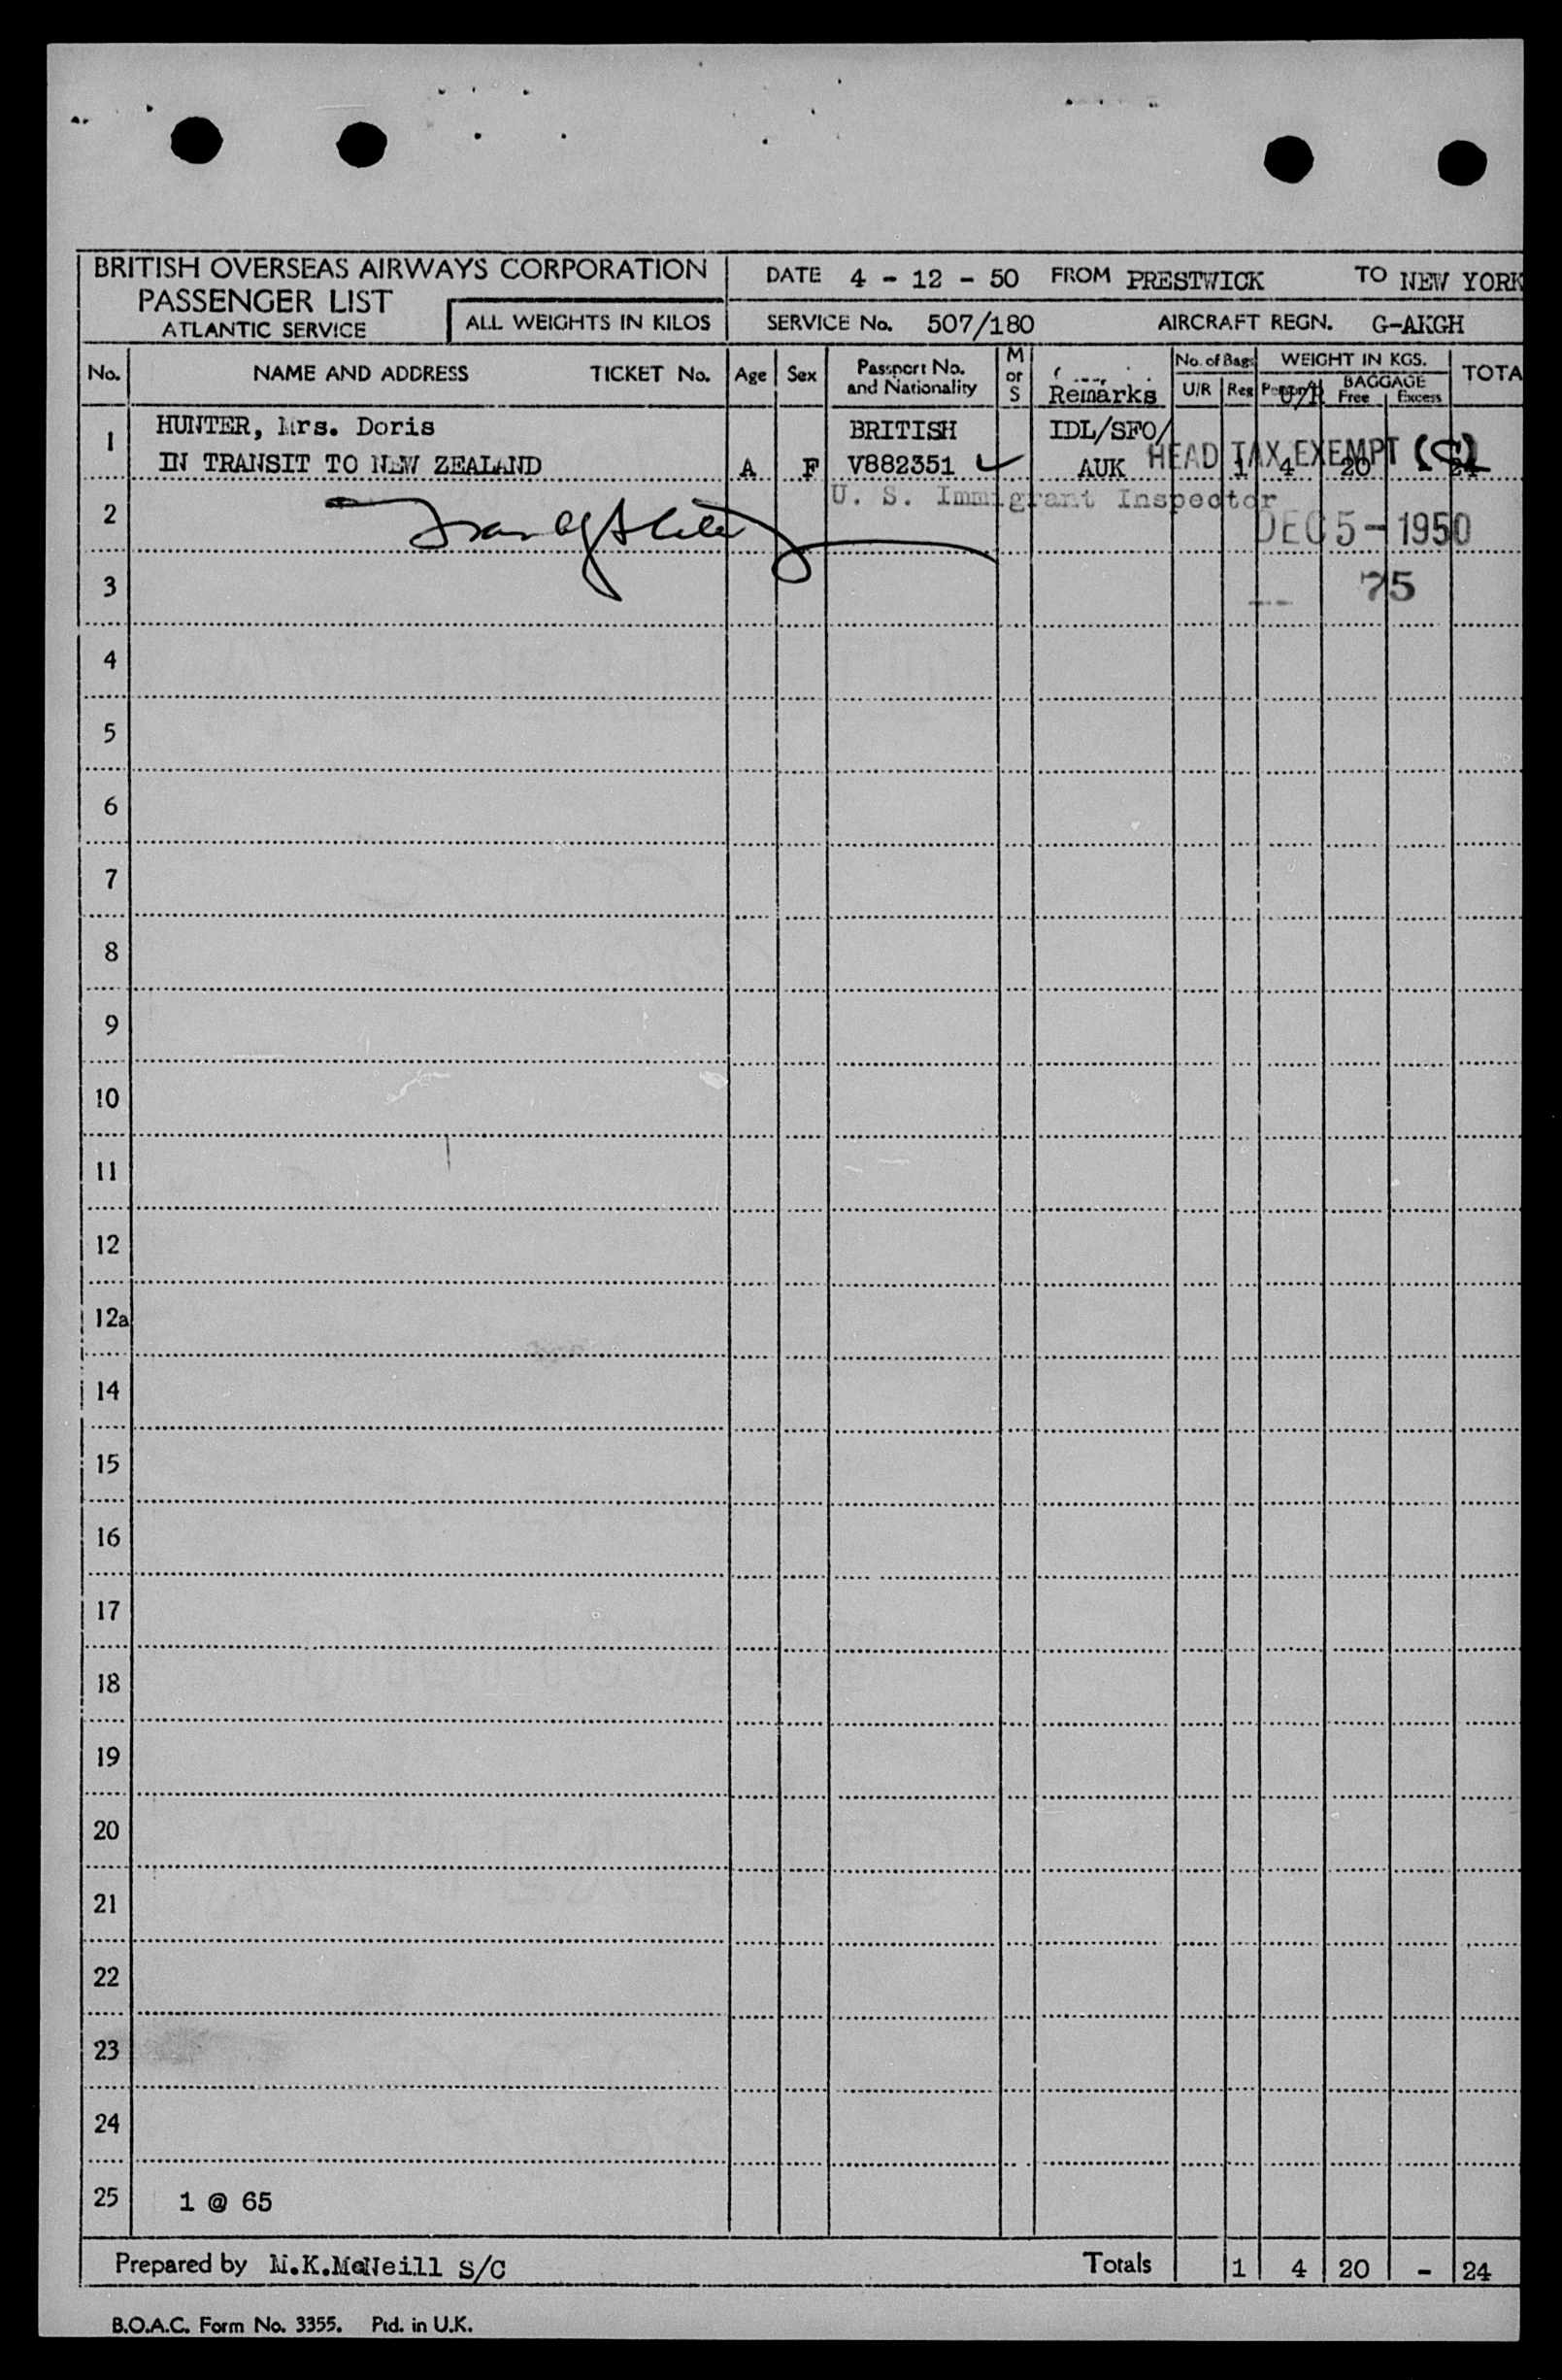 BRITISH OVERSEAS AIRWAYS CORPORATION
PASSENGER LIST
ATLANTIC SERVICE
ALL WEIGHTS IN KILOS
DATE 4 - 12 - 50 FROM PRESTWICK TO NEW YORK
SERVICE No. 507/180 AIRCRAFT REGN. G-AKGH
No. NAME AND ADDRESS TICKET No. Age Sex Passport No. and Nationality M or S Remarks No. of Bags U/R Reg WEIGHT IN KGS. U/R BAGGAGE Free Excess TOTA
1 HUNTER, Mrs. Doris BRITISH IDL/SFO/
IN TRANSIT TO NEW ZEALAND A F V882351 ✓ AUK 1 4 20 - 24
HEAD TAX EXEMPT (C)
U. S. Immigrant Inspector
2 DEC 5 - 1950
3 75
4
5
6
7
8
9
10
11
12
12a
14
15
16
17
18
19
20
21
22
23
24
25 1 @ 65
Prepared by M.K.McNeill S/C Totals 1 4 20 - 24
B.O.A.C. Form No. 3355. Ptd. in U.K.